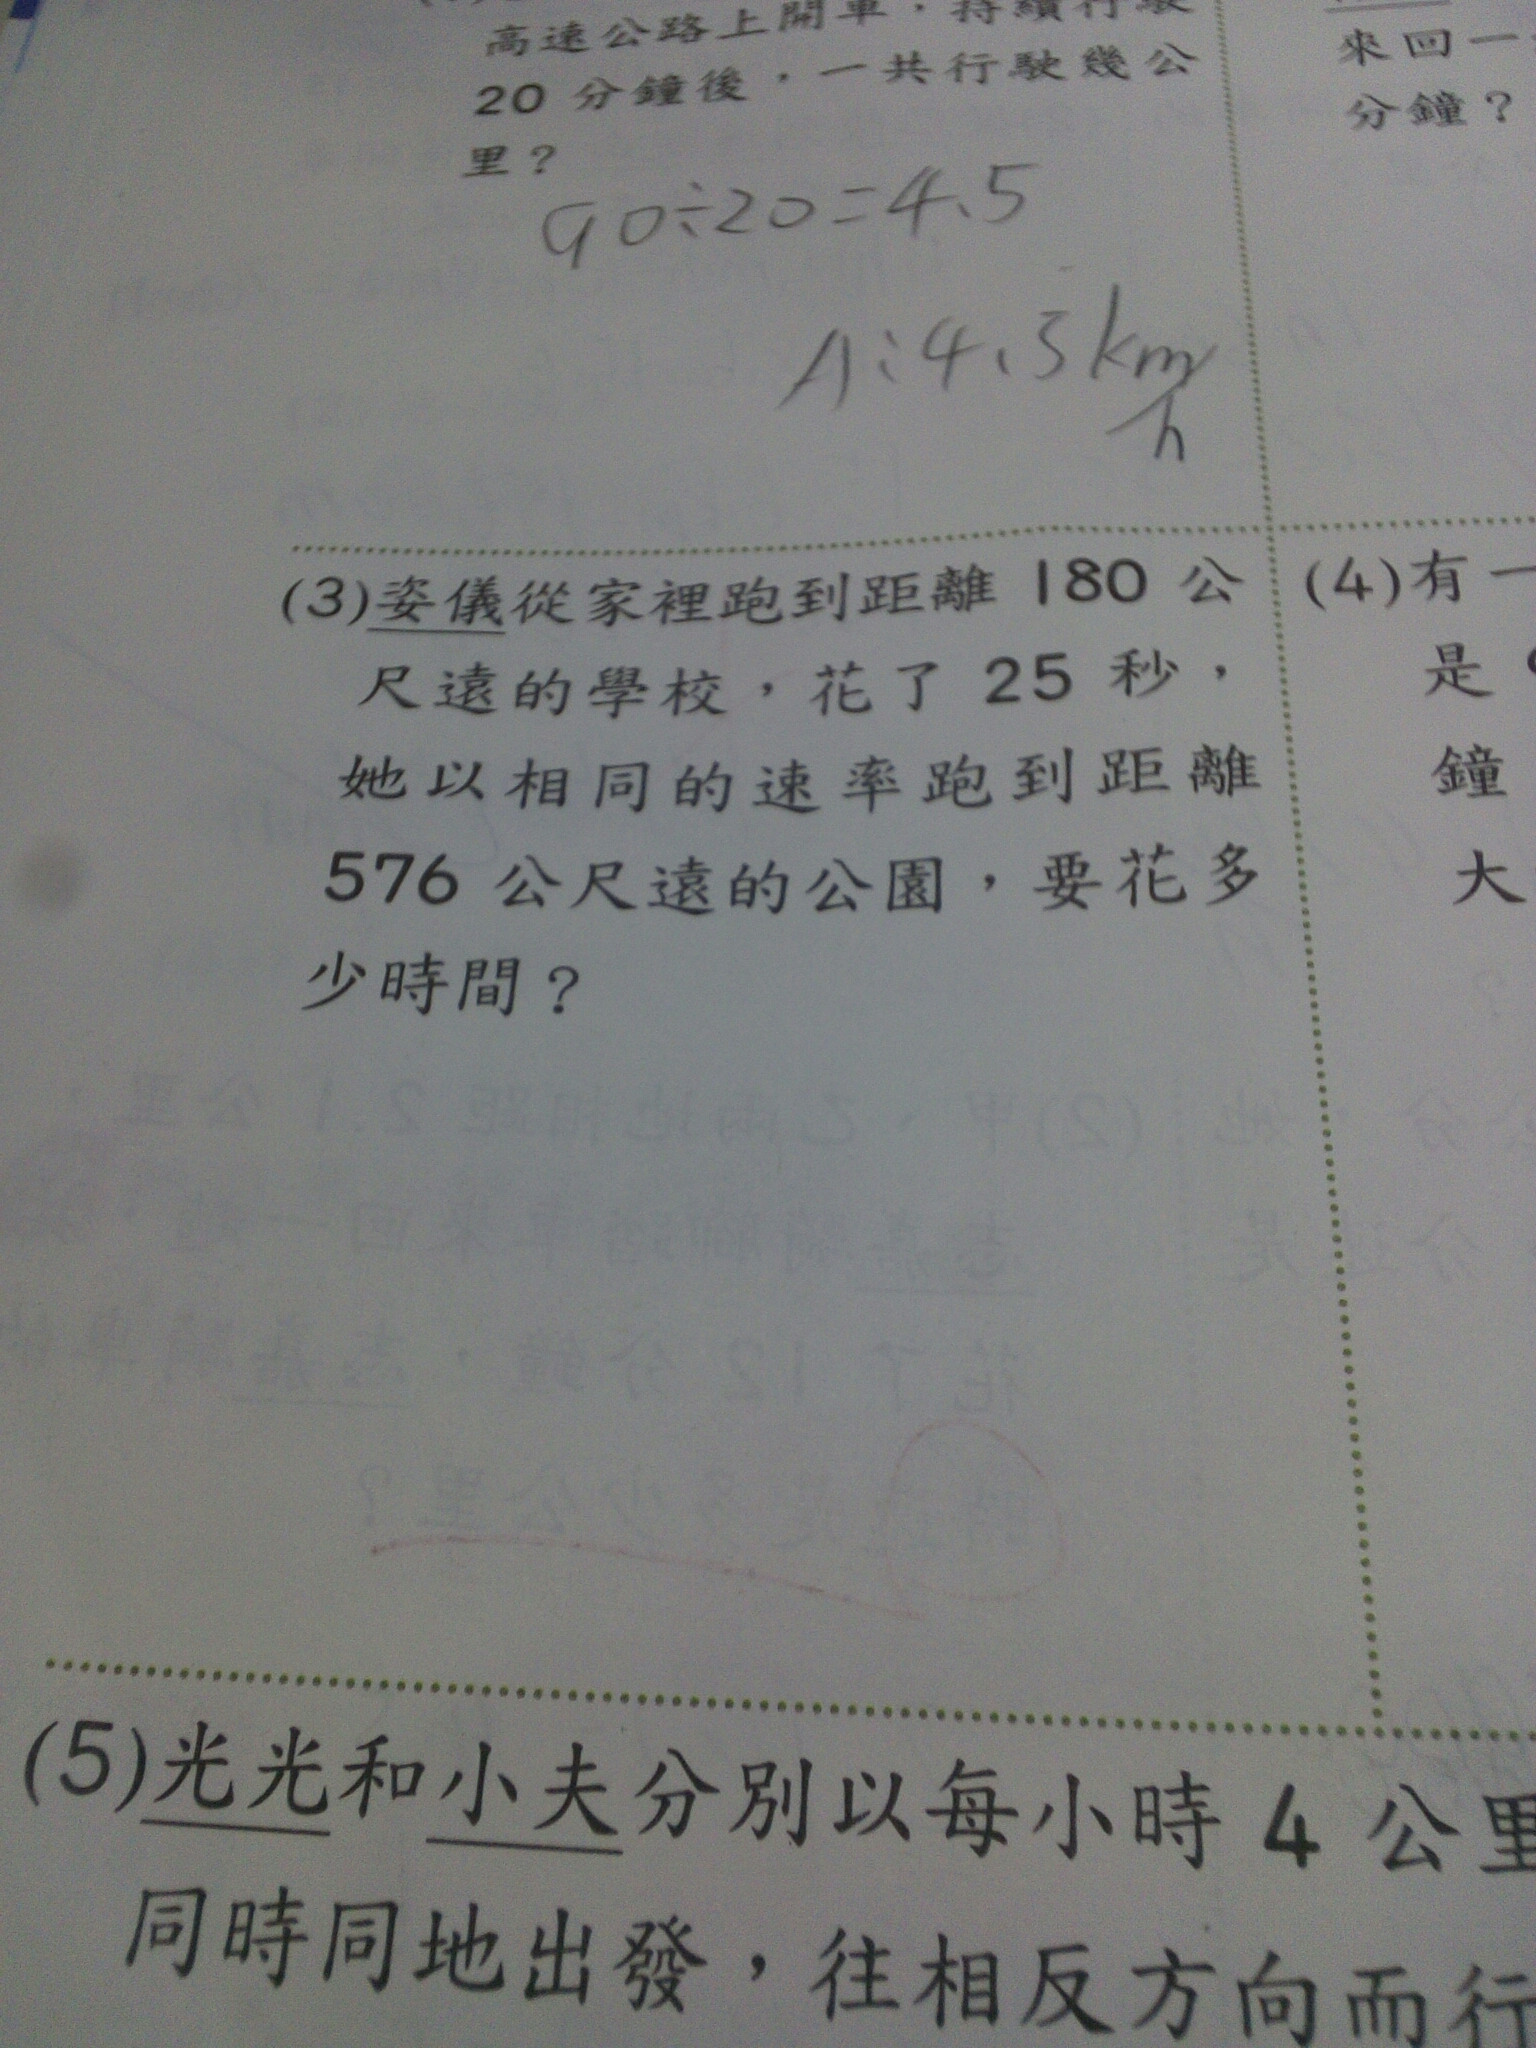 高速公路上開車，持續行駛
20 分鐘後，一共行駛幾公
里？
90÷20=4.5
A:4.5km/h
來回一
分鐘？
(3)姿儀從家裡跑到距離 180 公
尺遠的學校，花了 25 秒，
她以相同的速率跑到距離
576 公尺遠的公園，要花多
少時間？
(4)有一
是
鐘
大
(5)光光和小夫分別以每小時 4 公里
同時同地出發，往相反方向而行